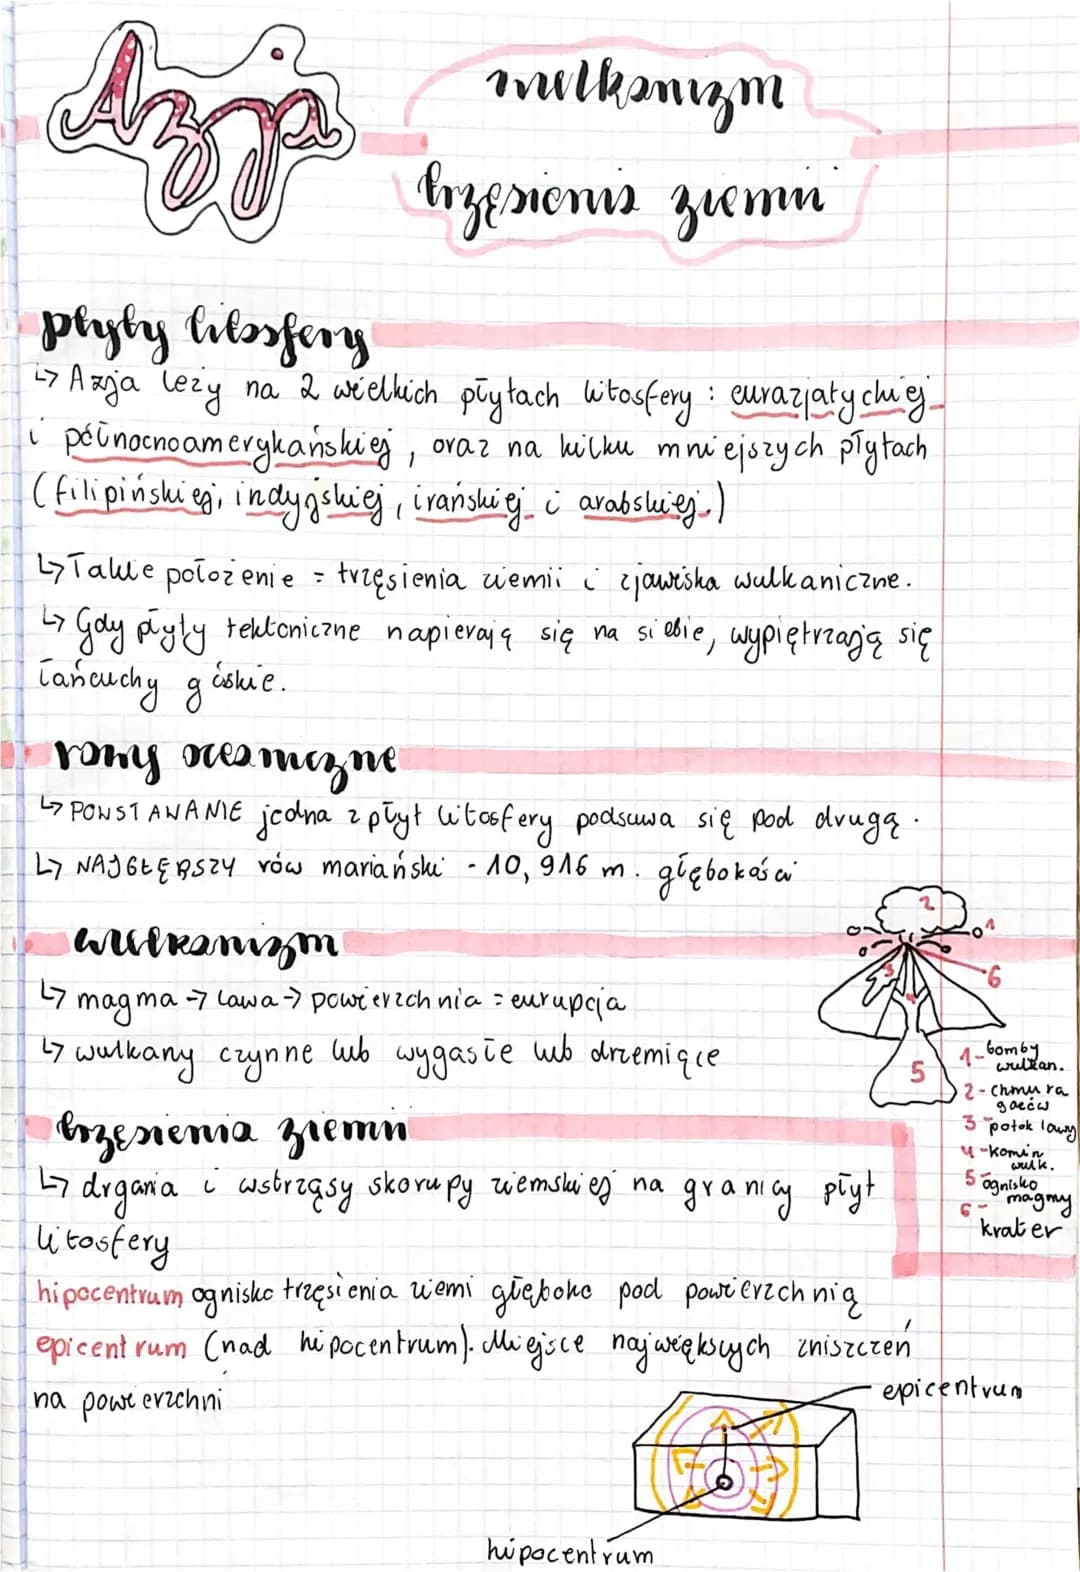 Azja
wulkanizm
trzęsienia ziemii
płyty litosfery
↳ Azja leży na 2 wielkich płytach litosfery : eurazjatyckiej
i północnoamerykańskiej, oraz na kilku mniejszych płytach
(filipińskiej, indyjskiej, irańskiej i arabskiej.)
↳ Takie położenie = trzęsienia ziemii i zjawiska wulkaniczne.
↳ Gdy płyty tektoniczne napierają się na siebie, wypiętrzają się
łańcuchy górskie.
rowy oceaniczne
↳ POWSTAWANIE jedna z płyt litosfery podsuwa się pod drugą.
↳ NAJGŁĘBSZY rów mariański - 10,916 m. głębokości
wulkanizm
↳ magma → lawa → powierzchnia = eurupcja
↳ wulkany czynne lub wygasłe lub drzemiące
2
1
6
3
4
5
1-bomby
wulkan.
2-chmura
gazów
3-potok lawy
4-komin
wulk.
5 ognisko
magmy
6-
krater
trzęsienia ziemii
↳ drgania i wstrząsy skorupy ziemskiej na granicy płyt
litosfery
hipocentrum ognisko trzęsienia ziemi głęboko pod powierzchnią
epicentrum (nad hipocentrum). Miejsce największych zniszczeń
na powierzchni
epicentrum
hipocentrum